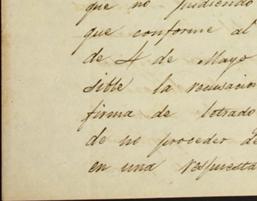 que no pudiendo
que conforme al
de 4 de Mayo
sible la recusacion
firma de letrado
de no proceder de
en una respuesta